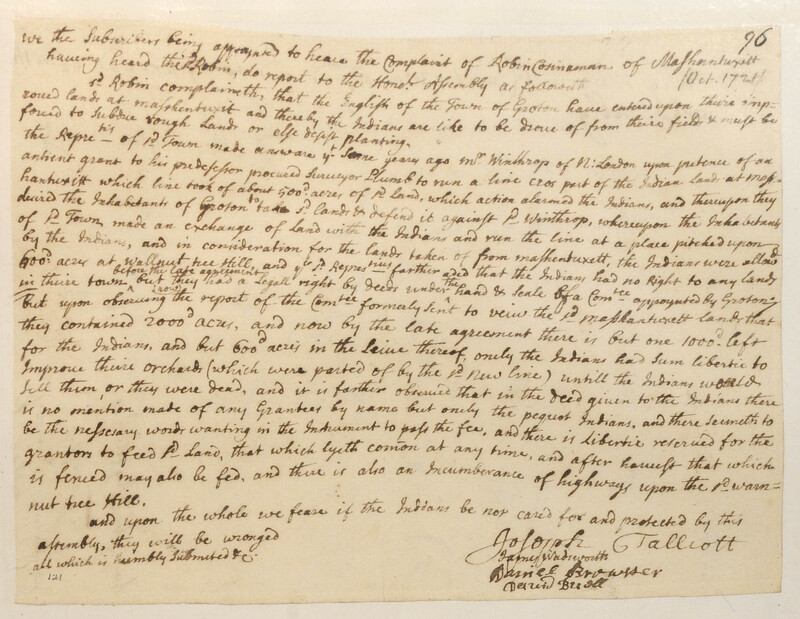 96
we the Subscribers being appoynted to heare the Complaint of Robin Cosinaman of Mashontuxitt
haveing heard the sd Robin, do report to the Honobl Assembly as followeth (Oct. 1721)
sd Robin complaineth, that the English of the Town of Groton have entered upon theire imp-
roved lands at mashhentuxit and thereby the Indians are like to be drove of from their fields & must be
forced to Subdue rough Lands or else desist planting.
the Repretis of sd Town made answare yt Some years ago mr Winthrop of N: London upon pretence of an
antient grant to his predesessor procured Surveyor Plumb to run a line cros part of the Indian Land at mash-
hantuxitt which line took of about 500d acres of sd Land, which action alarmed the Indians, and thereupon they
desired the Inhabetants of Groton to take sd lands & defend it against sd Winthrop, whereupon the Inhabetants
of sd Town made an exchange of Land with the Indians and run the line at a place pitched upon
by the Indians, and in consideration for the lands taken of from mashentuxett, the Indians were allowd
600d acres at wallnut tree Hill, and yr sd Represtius farther aded that the Indians had no Right to any lands
before the late agreement
in their town but they had a Legall right by deeds under the hand & Seale of a Comtee appoynted by Groton,
but upon observeing the report of the Comtee formerly Sent to veiw the sd mashantuxett Lands that
they contained 2000d acres, and now by the late agreement there is but one 1000d left
for the Indians, and but 600d acres in the Leiue thereof, onely the Indians had Sum libertie to
Improve theire orchards (which were parted of by the sd New line) untill the Indians would
Sell them, or they were dead, and it is farther observed that in the deed given to the Indians there
is no mention made of any Grantees by name but onely the pequot Indians, and there Seemeth to
be the nessesary words wanting in the Intrument to pass the fee, and there is Libertie reserved for the
grantors to feed sd Land, that which lyeth comon at any time, and after havuest that which
is fenced may also be fed, and there is also an Incumberance of highways upon the sd warn-
nut tree Hill.
and upon the whole we feare if the Indians be nor cared for and protected by this
assembly, they will be wronged
all which is humbly Submited &c:
Joseph Tallcott
James Wadsworth
Daniel Brewster
121